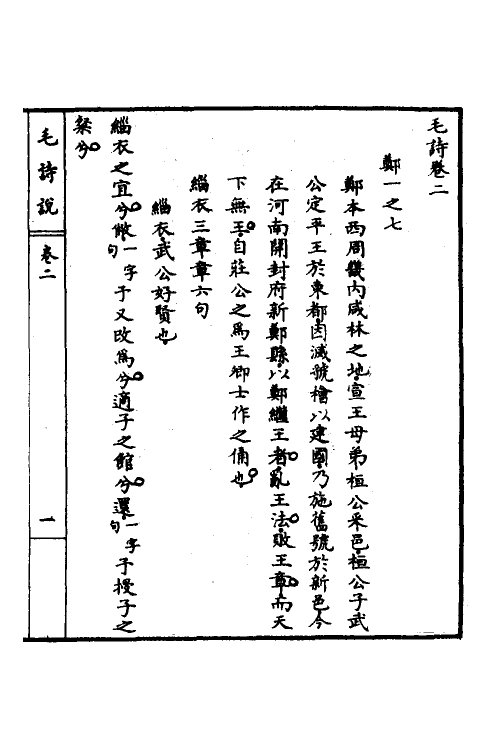 毛詩卷二
鄭一之七
鄭本西周畿内咸林之地宣王母弟桓公采邑桓公子武
公定平王於東都因滅虢檜以建國乃施舊號於新邑今
在河南開封府新鄭縣以鄭繼王者亂王法敗王章而天
下無王自莊公之爲王卿士作之俑也
緇衣三章章六句
緇衣武公好賢也
緇衣之宜兮敝一字句予又改爲兮適子之館兮還一字句予授子之
粲兮
毛詩說 卷二 一